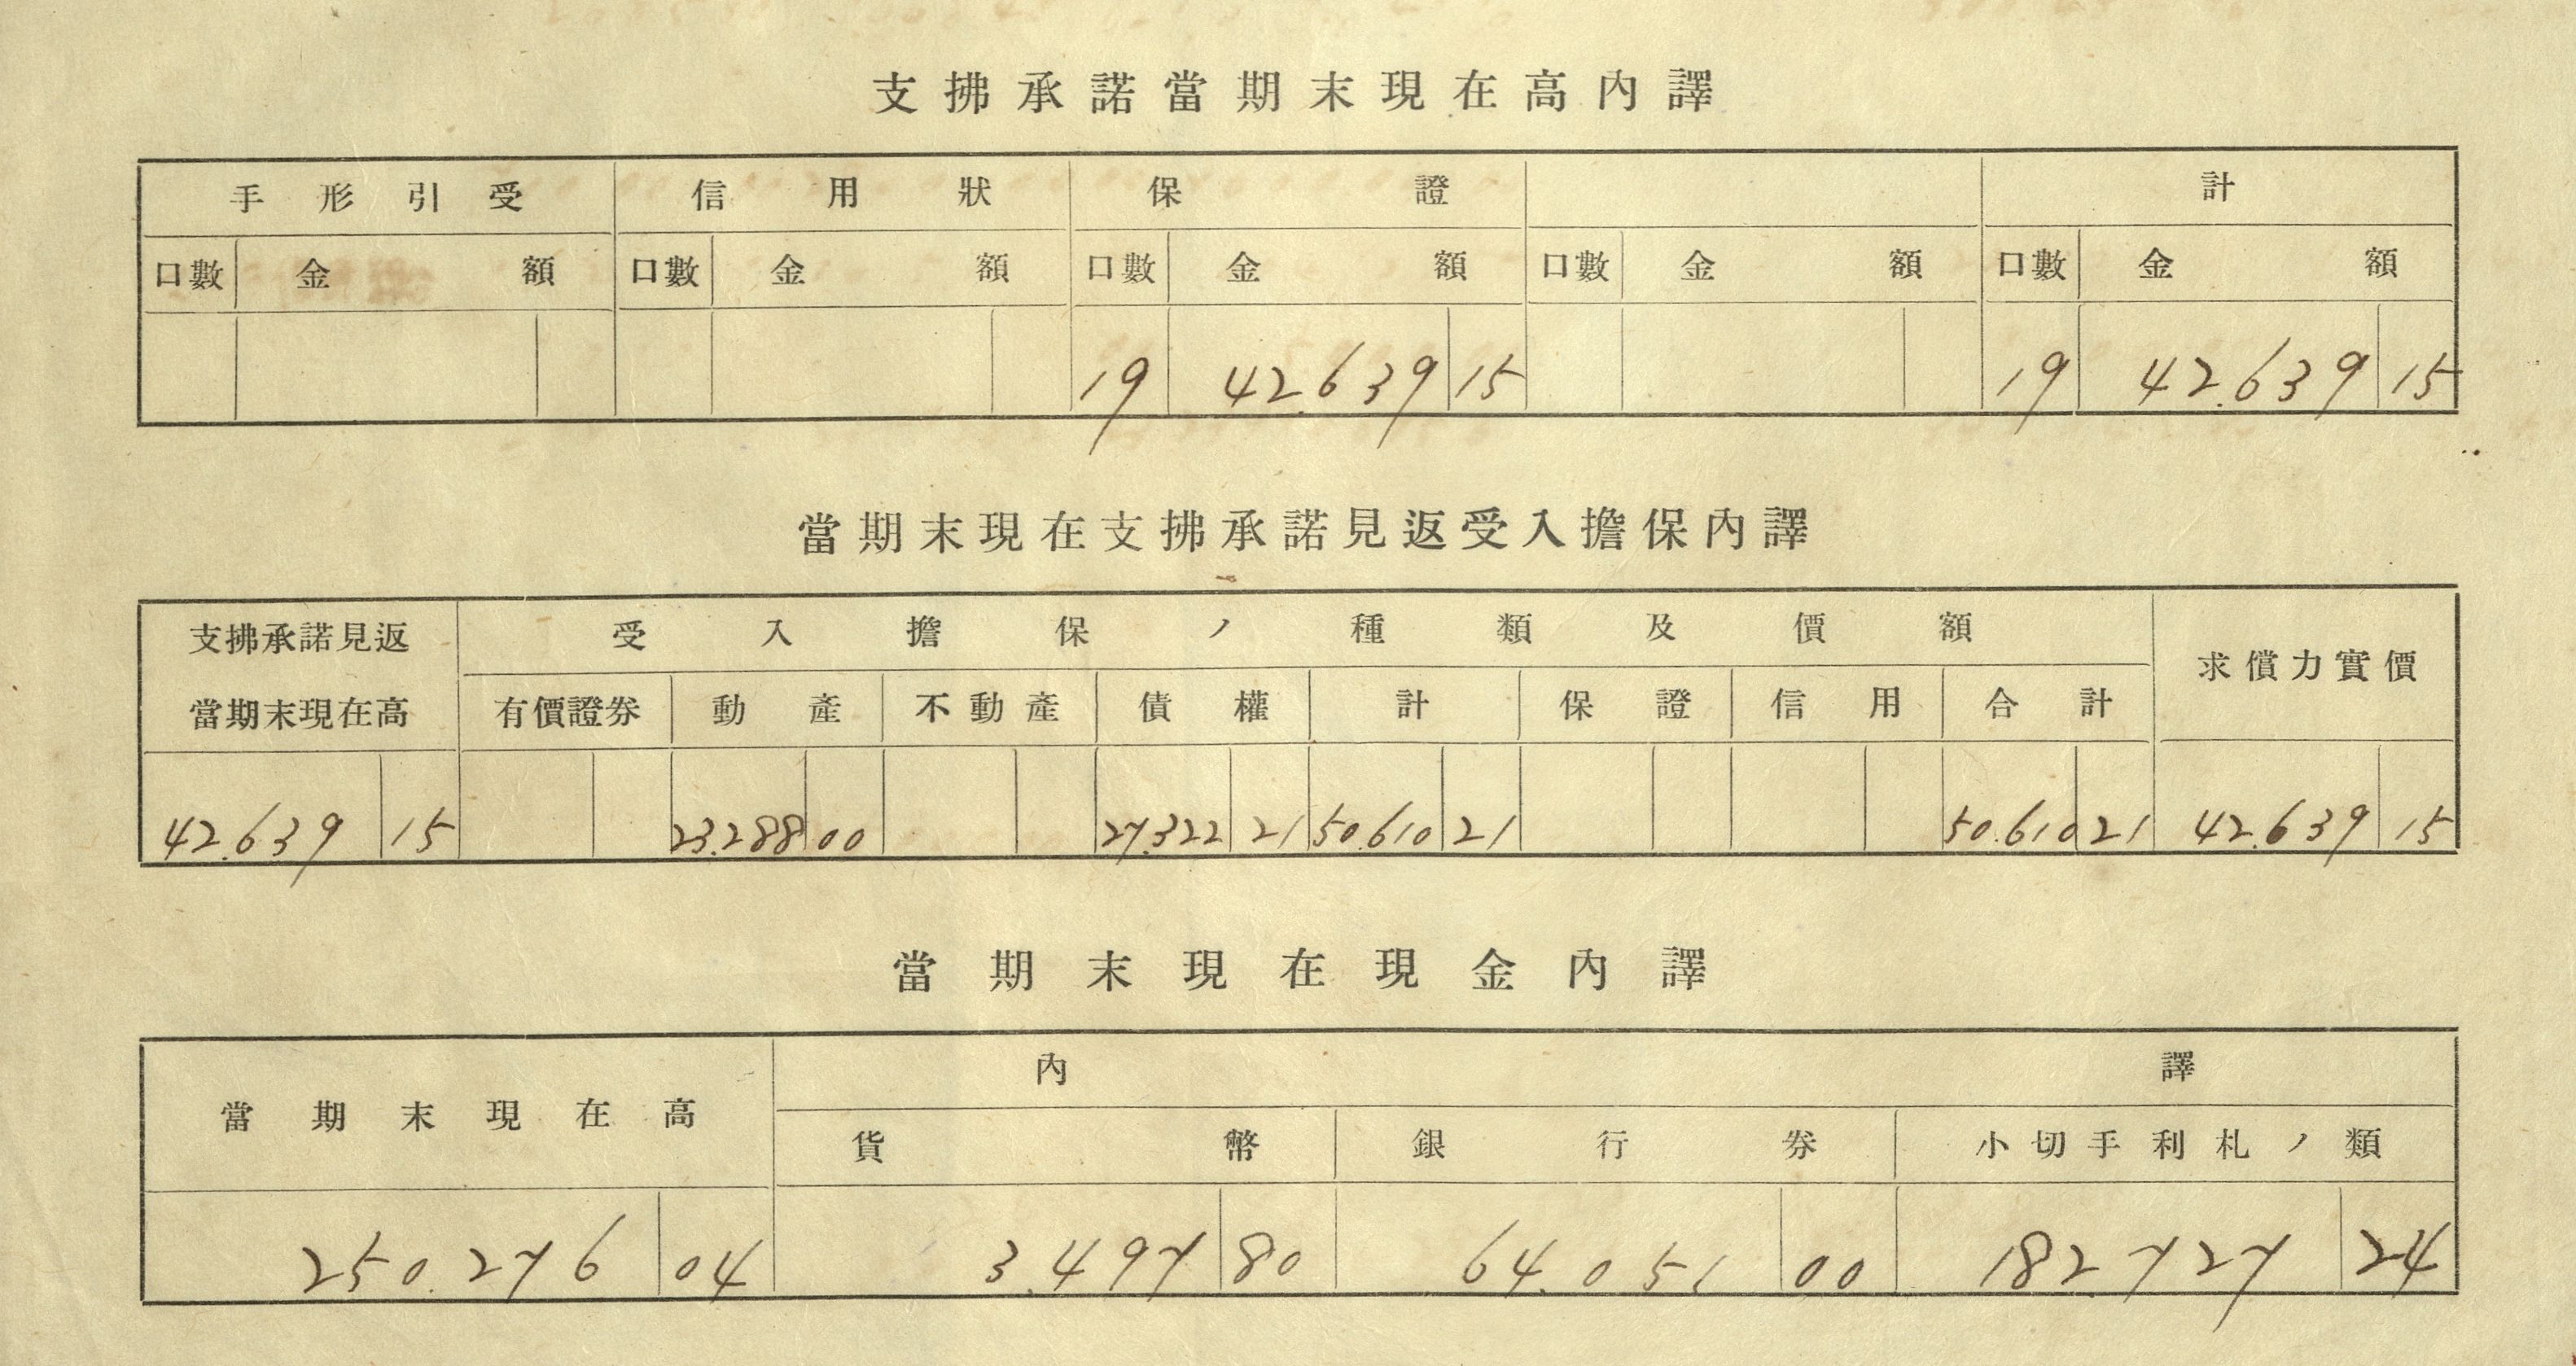 支拂承諾當期末現在高內譯
手形引受 信用狀 保證 計
口數 金額 口數 金額 口數 金額 口數 金額 口數 金額
19 42.639 15 19 42.639 15
當期末現在支拂承諾見返受入擔保內譯
支拂承諾見返 受入擔保ノ種類及價額 求償力實價
當期末現在高 有價證券 動產 不動產 債權 計 保證 信用 合計
42.639 15 23.288 00 27.322 21 50.610 21 50.610 21 42.639 15
當期末現在現金內譯
當期末現在高 內譯
貨幣 銀行券 小切手利札ノ類
250.276 04 3.497 80 64.051 00 182.727 24